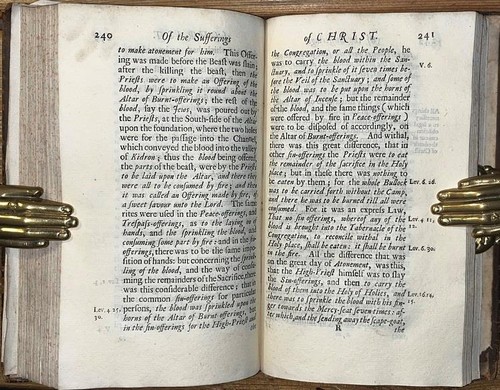 240 Of the Sufferings
to make atonement for him. This Offer-
ing was made before the Beast was slain;
after the killing the beast, then the
Priests were to make an Offering of the
blood, by sprinkling it round about the
Altar of Burnt-offerings; the rest of the
blood, say the Jews, was poured out by
the Priests, at the South-side of the Altar
upon the foundation, where the two holes
were for the passage into the Channel,
which conveyed the blood into the valley
of Kidron; thus the blood being offered,
the parts of the beast, were by the Priests
to be laid upon the Altar, and there they
were all to be consumed by fire; and then
it was called an Offering made by fire, of
a sweet savour unto the Lord. The same
rites were used in the Peace-offerings, and
Trespass-offerings, as to the laying on of
hands, and the sprinkling the blood, and
consuming some part by fire: and in the sin-
offerings, there was to be the same impo-
sition of hands: but concerning the sprink-
ling of the blood, and the way of consu-
ming the remainders of the Sacrifice, there
was this considerable difference; that in
the common sin-offerings for particular
Lev. 4. 25, persons, the blood was sprinkled upon the
30. horns of the Altar of Burnt-offerings, but
in the sin-offerings for the High-Priest and
the
of CHRIST. 241
the Congregation, or all the People, he
was to carry the blood within the San- V. 6.
ctuary, and to sprinkle of it seven times be-
fore the Veil of the Sanctuary; and some of
the blood was to be put upon the horns of
the Altar of Incense; but the remainder
of the blood, and the same things (which
were offered by fire in Peace-offerings)
were to be disposed of accordingly, on
the Altar of Burnt-offerings. And withal,
there was this great difference, that in
other sin-offerings the Priests were to eat
the remainder of the sacrifice in the Holy
place; but in these there was nothing to
be eaten by them; for the whole Bullock Lev. 6. 26.
was to be carried forth without the Camp,
and there he was to be burned till all were
consumed. For it was an express Law,
That no sin-offerings, whereof any of the Lev. 4 12,
blood is brought into the Tabernacle of the 12.
Congregation, to reconcile withal in the
Holy place, shall be eaten: it shall be burnt Lev. 6. 30.
in the fire. All the difference that was
on the great day of Atonement, was this,
that the High-Priest himself was to slay
the Sin-offerings, and then to carry the
blood of them into the Holy of Holies, and Lev. 16.14,
there was to sprinkle the blood with his fin- 15.
ger towards the Mercy-seat seven times: af-
ter which, and the sending away the scape-goat,
R the